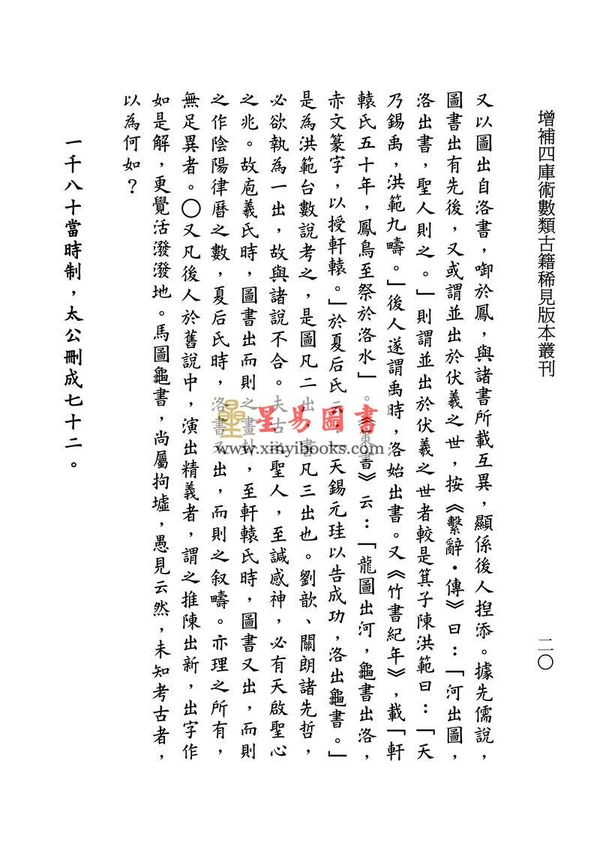 增補四庫術數類古籍稀見版本叢刊
二〇
又以圖出自洛書，啣於鳳，與諸書所載互異，顯係後人揑添。據先儒說，
圖書出有先後，又或謂並出於伏羲之世，按《繫辭·傳》曰：「河出圖，
洛出書，聖人則之。」則謂並出於伏羲之世者較是箕子陳洪範曰：「天
乃錫禹，洪範九疇。」後人遂謂禹時，洛始出書。又《竹書紀年》，載「軒
轅氏五十年，鳳鳥至祭於洛水」。《書》云：「龍圖出河，龜書出洛，
赤文篆字，以授軒轅。」於夏后氏云：「天錫元珪以告成功，洛出龜書。」
是為洪範台數說考之，是圖凡二出，書凡三出也。劉歆、關朗諸先哲，
必欲執為一出，故與諸說不合。夫古之聖人，至誠感神，必有天啟聖心
之兆。故庖羲氏時，圖書出而則之畫卦，至軒轅氏時，圖書又出，而則
之作陰陽律曆之數，夏后氏時，洛書又出，而則之叙疇。亦理之所有，
無足異者。〇又凡後人於舊說中，演出精義者，謂之推陳出新，出字作
如是解，更覺活潑潑地。馬圖龜書，尚屬拘墟，愚見云然，未知考古者，
以為何如？
一千八十當時制，太公刪成七十二。
星易圖書
www.xinyibooks.com